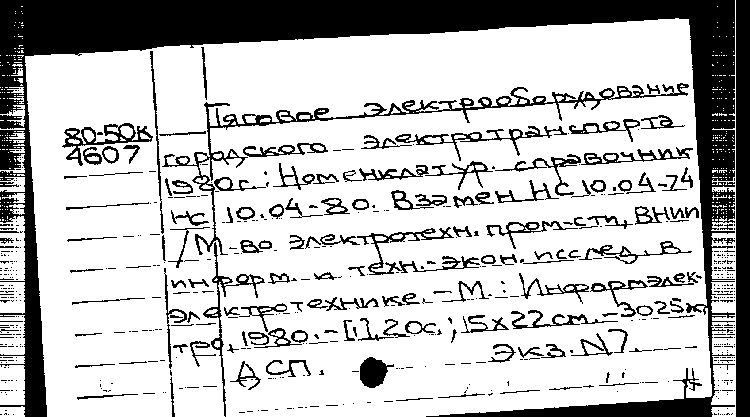 Тяговое электрооборудование
80-50к
4607
городского электротранспорта
1980г.: Номенклатур. справочник
НС 10.04-80. Взамен НС 10.04-74
/М-во электротехн. пром-сти, ВНИИ
информ. и техн.-экон. исслед. в
электротехнике. - М.: Информэлек-
тро, 1980. - [1], 20с.; 15х22см. - 3025экз.
ДСП. Экз. N7.